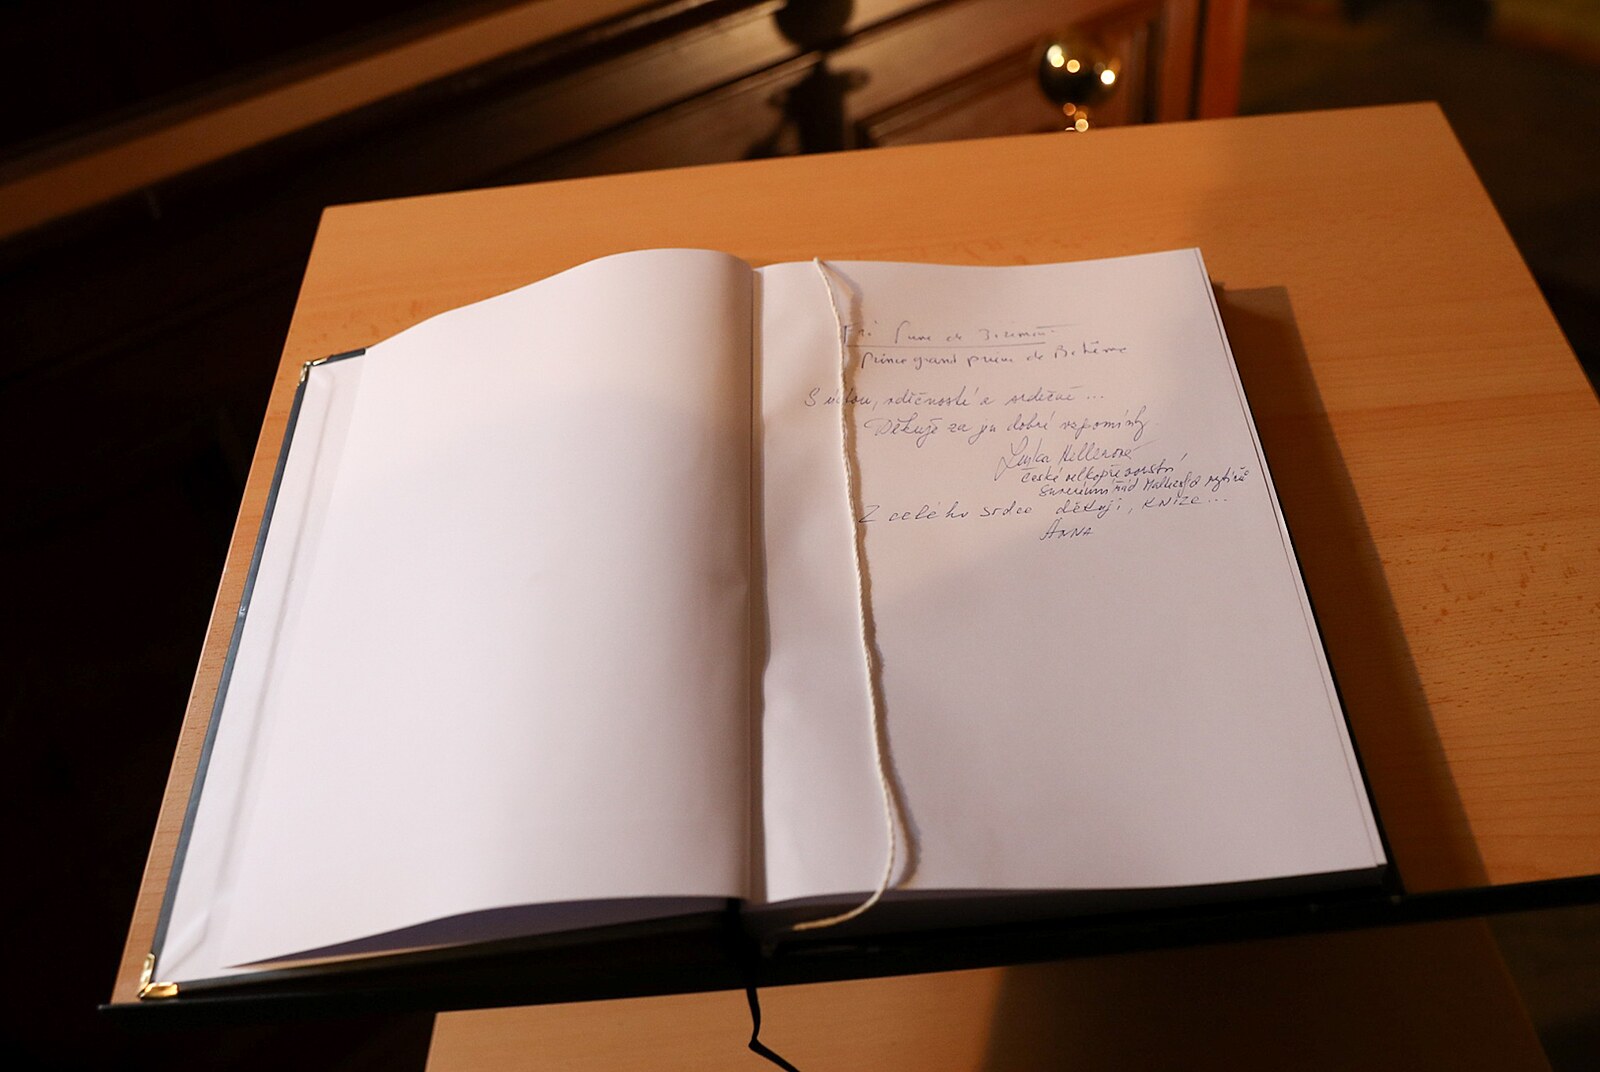 de
prince grand prieur de Bohême
S úctou, vděčností a srdečně ...
Děkuje za jen dobré vzpomínky
Lenka Hellerová
České velkopřevorství
Suverénní řád Maltézských rytířů
Z celého srdce děkuji, KNÍŽE ...
ANNA